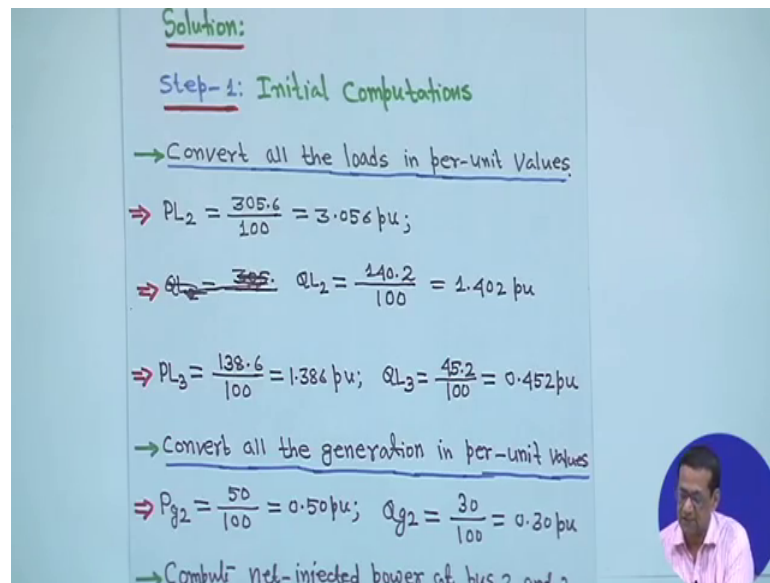 Solution:
Step-1: Initial Computations
→ Convert all the loads in per-unit values.
⇒ PL₂ = 305.6/100 = 3.056 pu;
⇒ QL₂ = 305. QL₂ = 140.2/100 = 1.402 pu
⇒ PL₃ = 138.6/100 = 1.386 pu; QL₃ = 45.2/100 = 0.452 pu
→ Convert all the generation in per-unit values
⇒ Pg₂ = 50/100 = 0.50 pu; Qg₂ = 30/100 = 0.30 pu
→ Compute net-injected power at bus 2 and